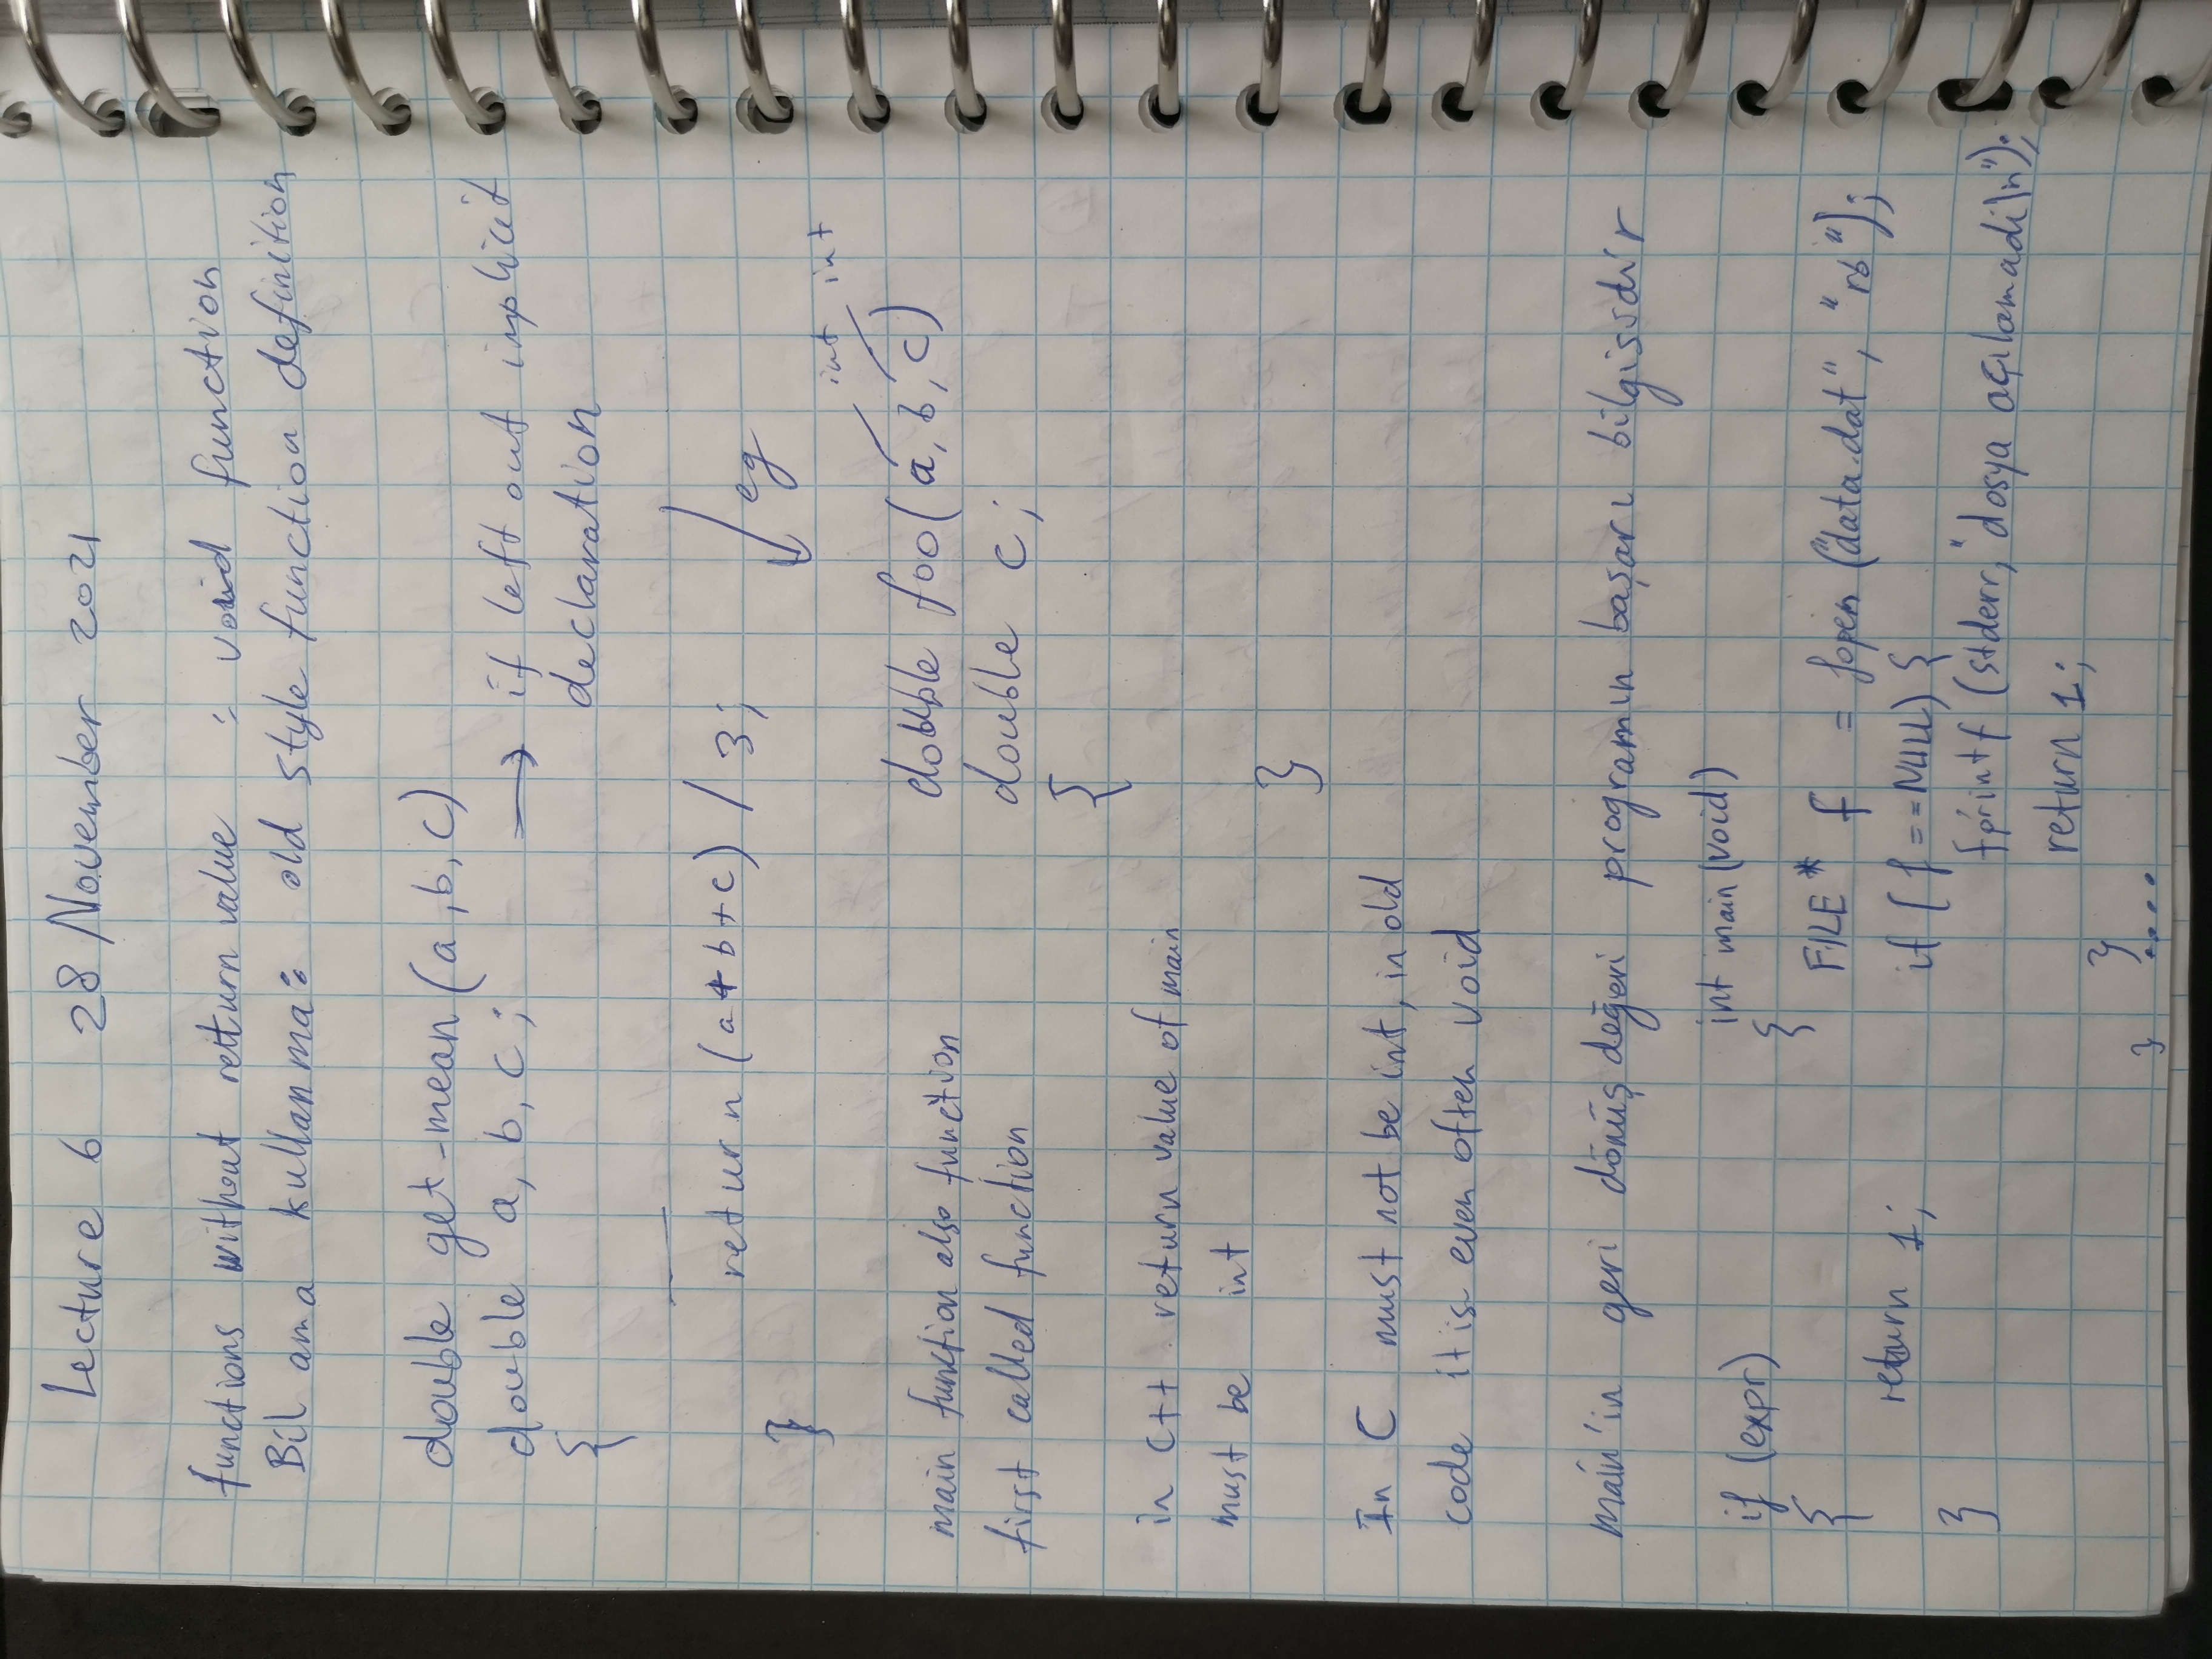 Lecture 6 28 November 2021
functions without return value : void function
Bil ama kullanma: old style function definition
double get-mean (a, b, c)
double a, b, c; → if left out implicit
declaration
{
return (a+b+c) / 3;
}
↓ eg
int int
double foo(a, b, c)
double c;
{
}
main function also function
first called function
in C++ return value of main
must be int
In C must not be int, in old
code it is even often void
main'in geri dönüş değeri programın başarı bilgisidir
if (expr)
{
return 1;
}
int main (void)
{
FILE* f = fopen ("data.dat", "rb");
if (f == NULL) {
fprintf (stderr, "dosya açılamadi\n");
return 1;
}
....
}